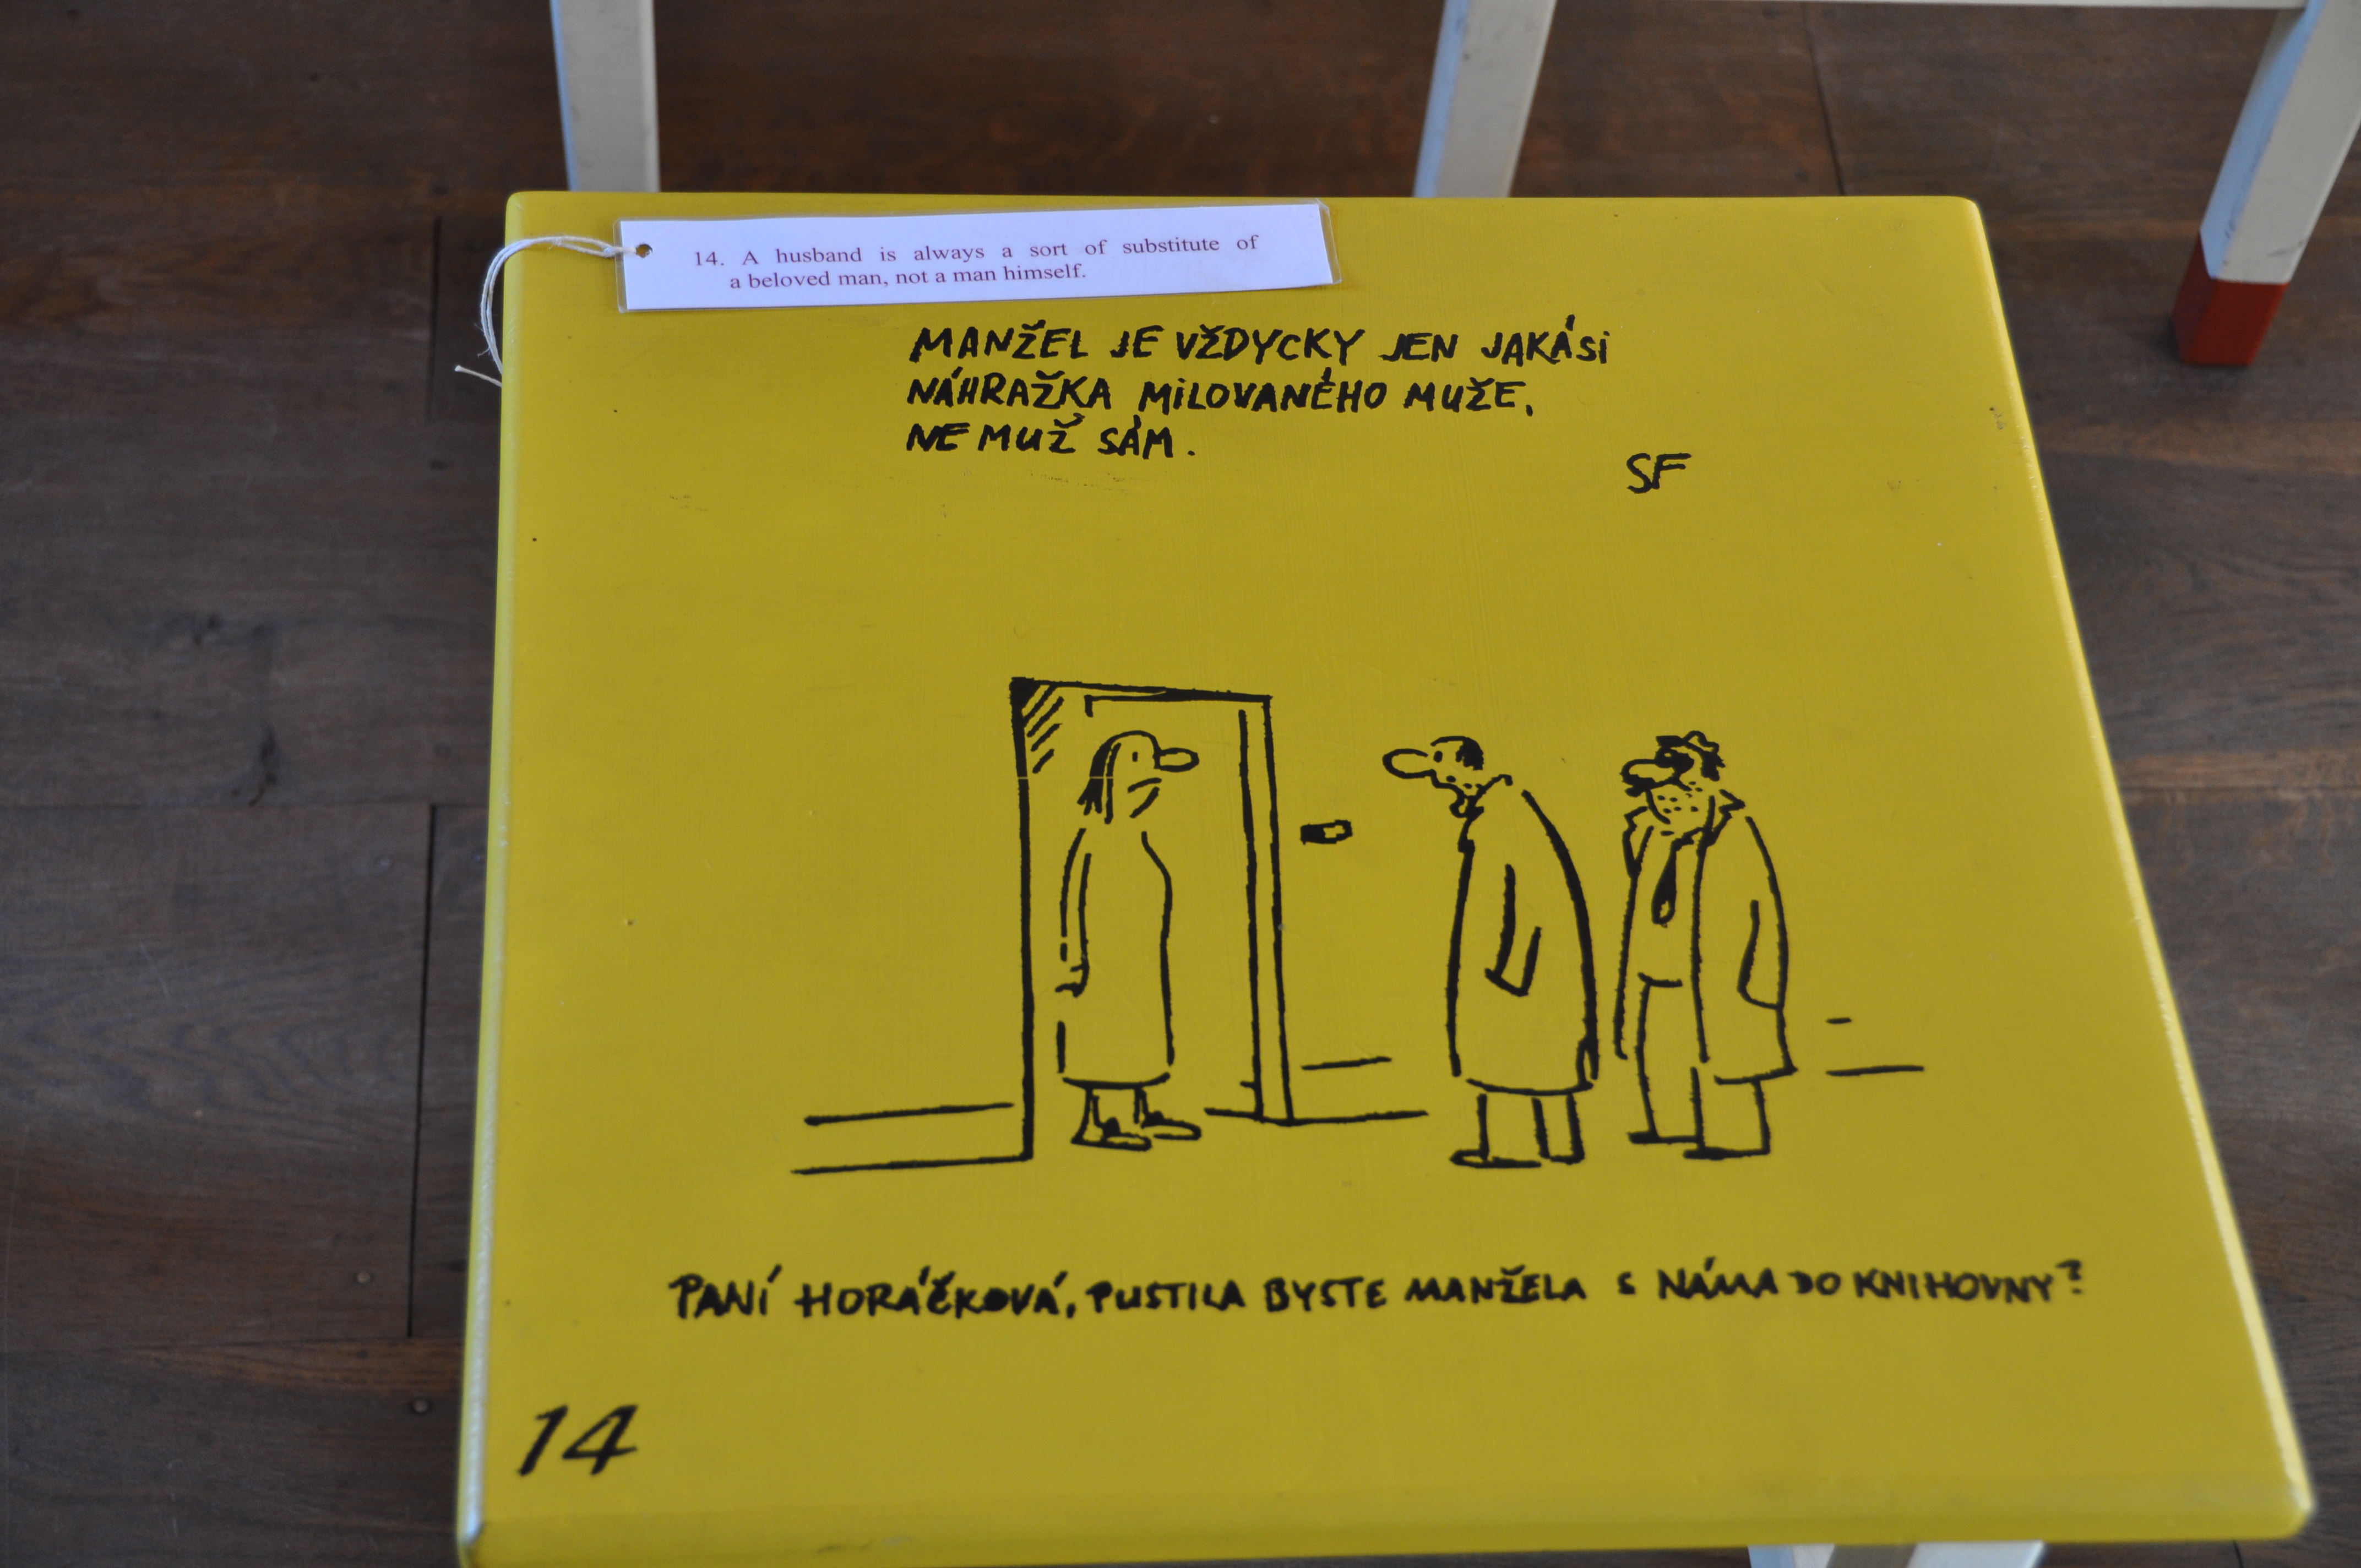 14. A husband is always a sort of substitute of
a beloved man, not a man himself.
MANŽEL JE VŽDYCKY JEN JAKÁSI
NÁHRAŽKA MILOVANÉHO MUŽE,
NE MUŽ SÁM.
SF
PANÍ HORÁČKOVÁ, PUSTILA BYSTE MANŽELA S NÁMA DO KNIHOVNY?
14